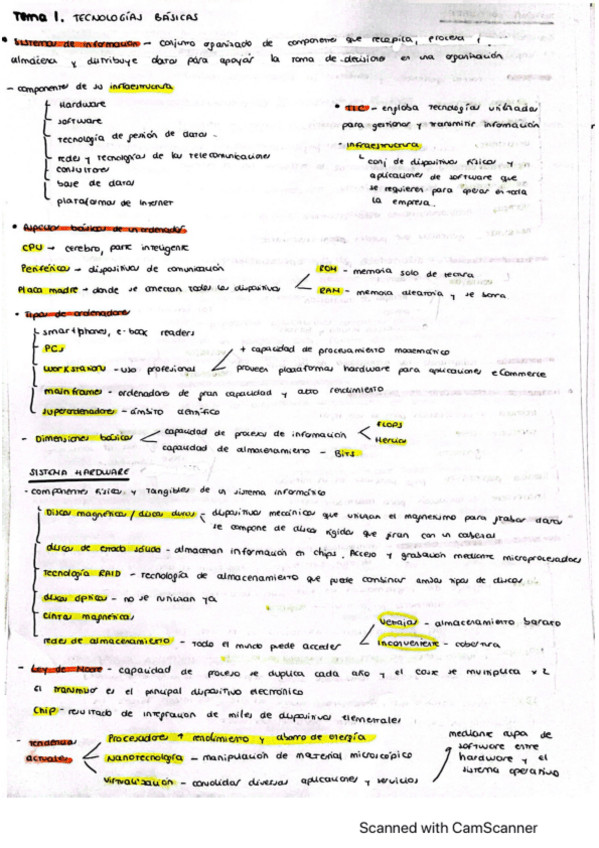 Tema 1. TECNOLOGÍAS BÁSICAS
• Sistemas de información - conjunto organizado de componentes que recopila, procesa y
almacena y distribuye datos para apoyar la toma de decisiones en una organización
- componentes de su infraestructura
Hardware
software
tecnología de gestión de datos
redes y tecnologías de las telecomunicaciones
consultores
base de datos
plataformas de Internet
• TIC - engloba tecnologías utilizadas
para gestionar y transmitir información
- infraestructura
conj de dispositivos físicos y
aplicaciones de software que
se requieren para operar en toda
la empresa.
• Aspectos básicos de un ordenador
CPU - cerebro, parte inteligente
Periféricos - dispositivos de comunicación
Placa madre - donde se conectan todos los dispositivos
ROM - memoria solo de lectura
RAM - memoria aleatoria y se borra
• Tipos de ordenadores
smartphones, e-book readers
PCs
workstation - uso profesional
+ capacidad de procesamiento matemático
proveen plataformas hardware para aplicaciones eCommerce
mainframes - ordenadores de gran capacidad y alto rendimiento
superordenadores - ámbito científico
- Dimensiones básicas
capacidad de proceso de información
FLOPS
Hercios
capacidad de almacenamiento - Bits
SISTEMA HARDWARE
- componentes físicos y tangibles de un sistema informático
Discos magnéticos / discos duros - dispositivos mecánicos que utilizan el magnetismo para grabar datos
se compone de discos rígidos que giran con un cabezal
discos de estado sólido - almacenan información en chips. Acceso y grabación mediante microprocesadores
tecnología RAID - tecnología de almacenamiento que puede combinar ambos tipos de discos
discos ópticos - no se utilizan ya
cintas magnéticas
redes de almacenamiento - todo el mundo puede acceder
Ventajas - almacenamiento barato
Inconveniente - cobertura
- Ley de Moore - capacidad de proceso se duplica cada año y el coste se multiplica x 2
El transistor es el principal dispositivo electrónico
Chip - resultado de integración de miles de dispositivos elementales
- tendencias
actuales
Procesadores + rendimiento y ahorro de energía
Nanotecnología - manipulación de material microscópico
Virtualización - consolidar diversas aplicaciones y servicios
mediante capa de
software entre
hardware y el
sistema operativo
Scanned with CamScanner